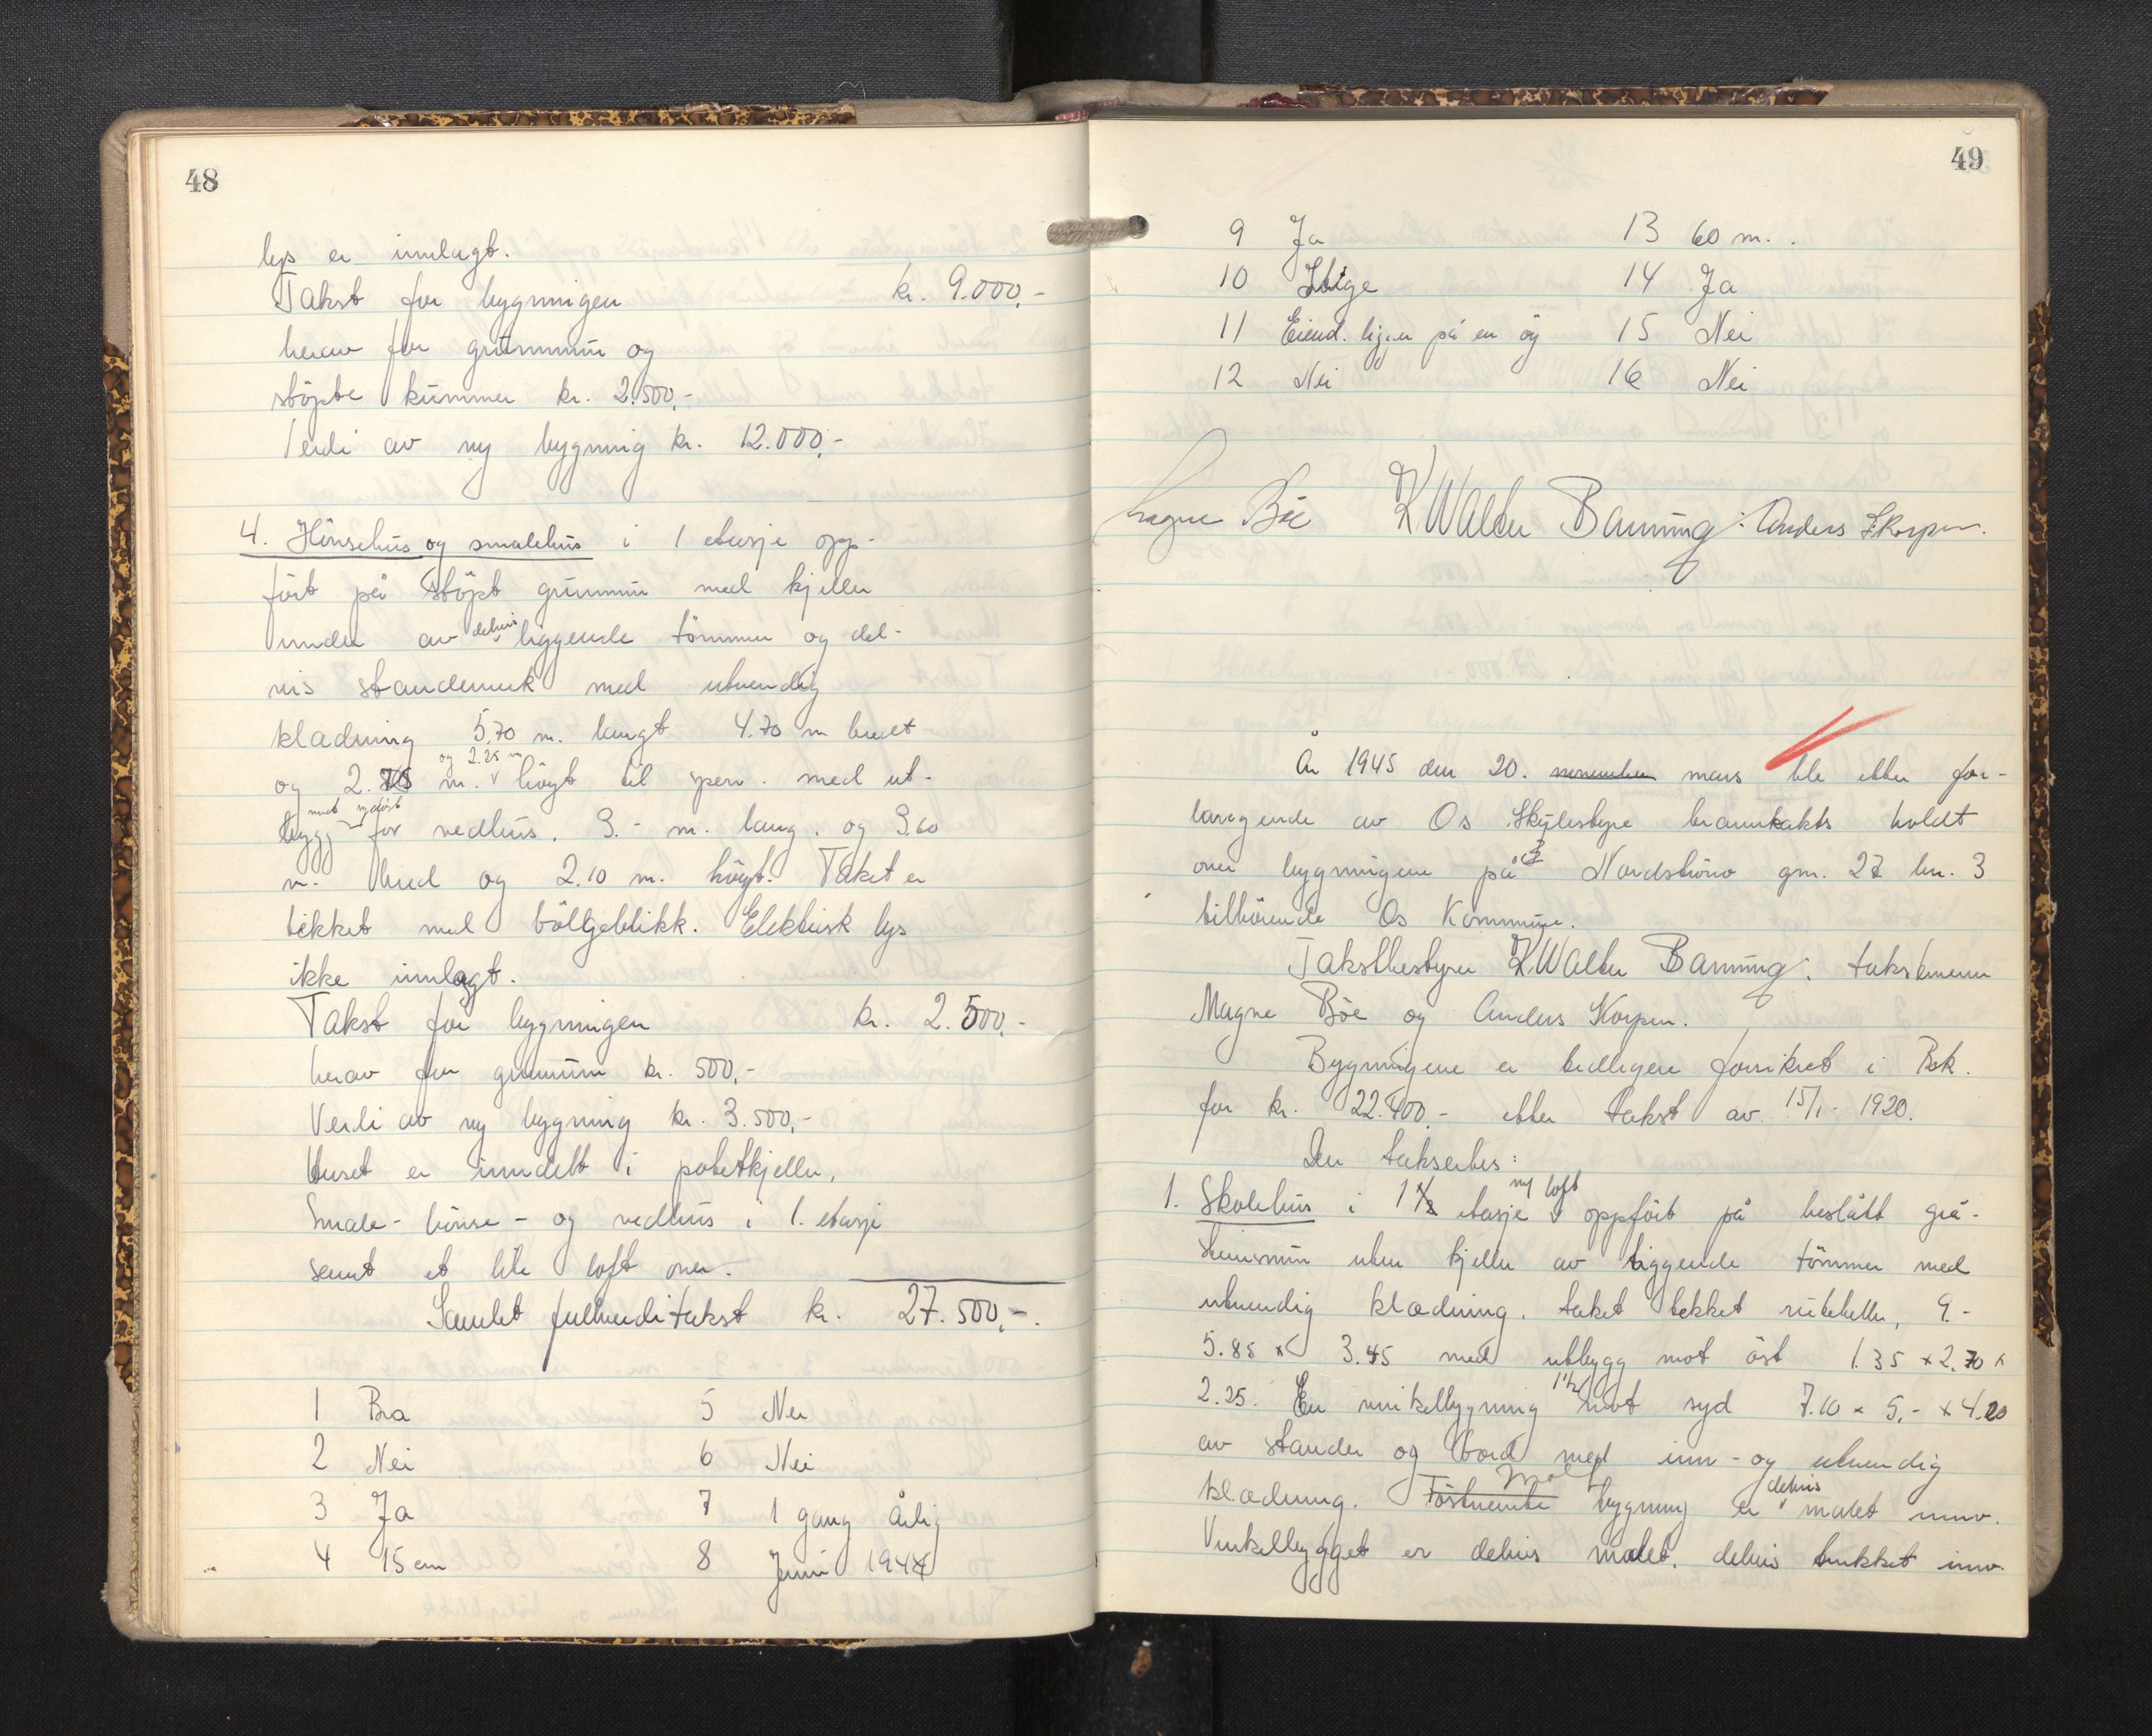 48
lys er innlagt.
Takst for bygningen kr. 9.000,-
herav for grunnmur og
støpte kummer kr. 2.500,-
Verdi av ny bygning kr. 12.000,-
4. Hönsehus og smalehus i 1 etasje opp-
ført på støpt grunnmur med kjeller
under av delvis liggende tömmer og del-
vis standerverk med utvendig
kladning 5,70 m. langt 4.70 m bredt
og 2. m. og 2.25 m högt til sperr. med ut-
bygg mot nordöst for vedhus. 3.- m. lang. og 3,60
m. bred og 2.10 m. högt. Taket er
tekket med bölgeblikk. Elektrisk lys
ikke innlagt.
Takst for bygningen kr. 2.500,-
herav for grunnmur kr. 500,-
Verdi av ny bygning kr. 3.500,-
Huset er inndelt i potetkjeller,
Smale- hönse- og vedhus i 1. etasje
samt et lite loft over.
Samlet fullverditakst kr. 27.500,-.
1 Bra 5 Nei
2 Nei 6 Nei
3 Ja 7 1 gang årlig
4 15 cm 8 Juni 1944
49
9 Ja 13 60 m. .
10 14 Ja
11 Eiend. ligger på en öy 15 Nei
12 Nei 16 Nei
Magne Böe K Walter Banning. Anders Skorpen.
År 1945 den 20. november mars ble etter for-
langende av Os Skylestyre branntakts holdt
over bygningene på Nordströno gnr. 27 bn. 3
tilhörende Os Kommune.
Takstbestyrer K. Walter Banning. takstmenn
Magne Böe og Anders Skorpen.
Bygningene er tidligere forsikret i Bsk.
for kr. 22.400.- etter takst av 15/1- 1920.
Der takseres:
1. Skolehus i 1 etasje m/ loft oppfört på beslått grå-
steinsmur uten kjeller av liggende tömmer med
utvendig kladning. taket tekket rutehelle, 9.-
5.85 x 3.45 med utbygg mot öst 1.35 x 2.70 x
2.25. En vinkelbygning 1 1/2 mot syd 7.10 x 5.- x 4.20
av stander og bord med inn- og utvendig
kladning. Förstnevnte bygning er delvis malet innv.
Vinkelbygget er delvis malet. delvis trukket innv.